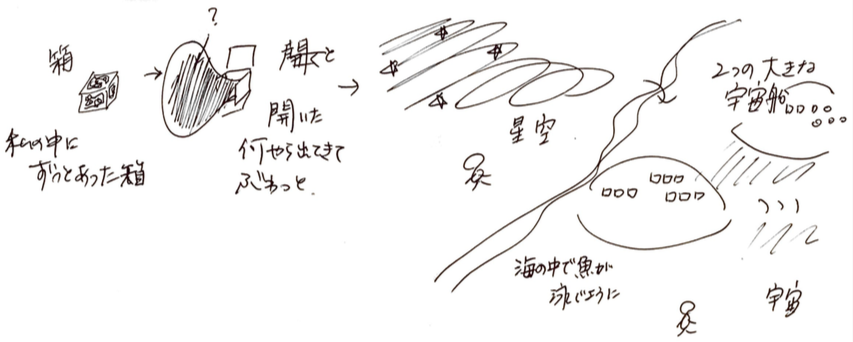 箱
私の中に
ずっとあった箱
?
開くと
開いた
何やら出てきて
ぶわっと
星空
2つの大きな
宇宙船
海の中で魚が
泳ぐように
宇宙